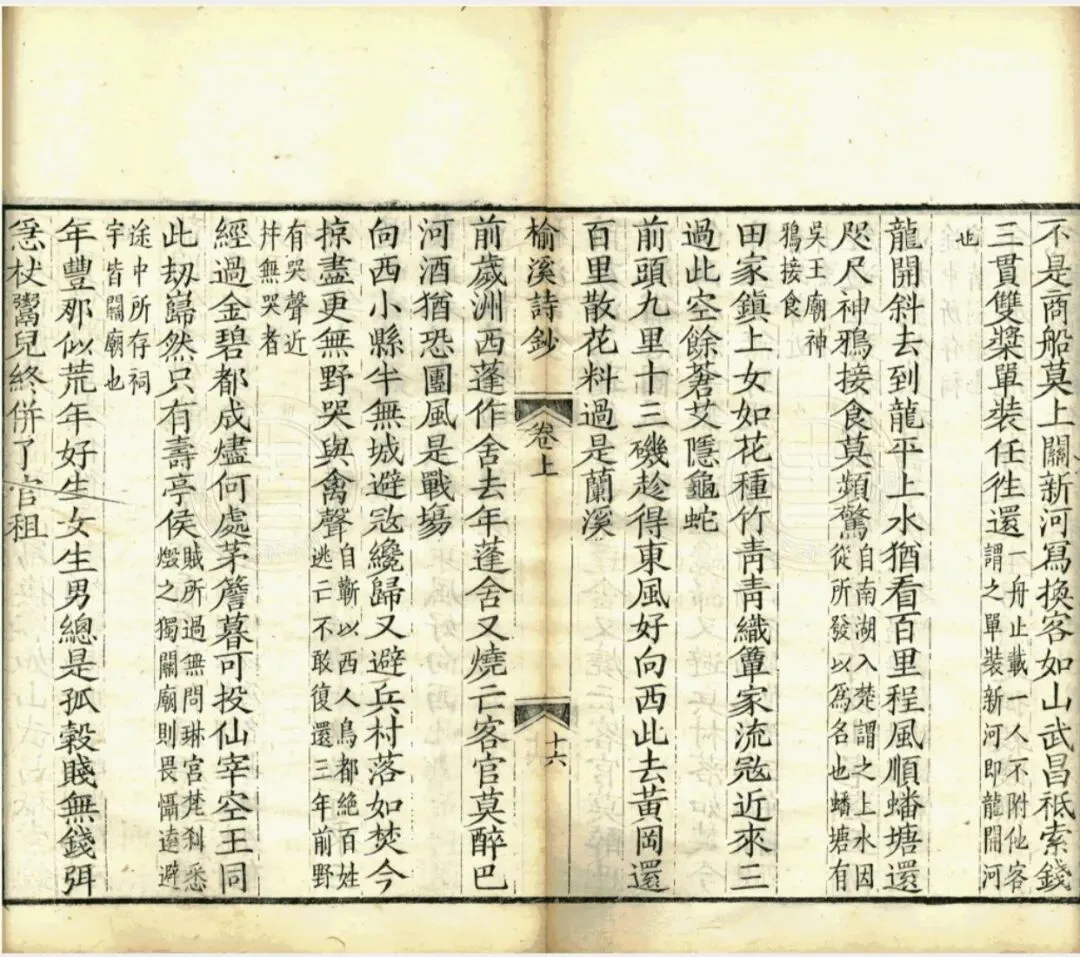 不是商船莫上關新河寫換客如山武昌祇索錢
三貫雙槳單裝任往還一舟止載一人不附他客
謂之單裝新河即龍開河
也
龍開斜去到龍平上水猶看百里程風順蟠塘還
咫尺神鴉接食莫頻驚自南湖入楚謂之上水因
從所發以為名也蟠塘有
吳王廟神
鴉接食
田家鎮上女如花種竹青青織簟家流寇近來三
過此空餘蒼艾隱龜蛇
前頭九里十三磯趁得東風好向西此去黃岡還
百里散花料過是蘭溪
榆溪詩鈔
卷上
十六
前歲洲西蓬作舍去年蓬舍又燒亡客官莫醉巴
河酒猶恐團風是戰場
向西小縣半無城避寇纔歸又避兵村落如焚今
掠盡更無野哭與禽聲自蘄以西人鳥都絕百姓
逃亡不敢復還三年前野
有哭聲近
并無哭者
經過金碧都成燼何處茅簷暮可投仙宰空王同
此劫歸然只有壽亭侯賊所過無問琳宮梵剎悉
燬之獨關廟則畏懾遠避
途中所存祠
宇皆關廟也
年豐那似荒年好生女生男總是孤穀賤無錢弭
急杖鬻兒終併了官租